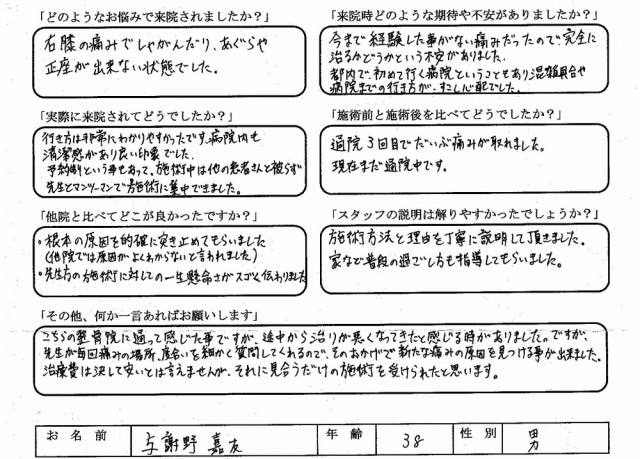 「どのようなお悩みで来院されましたか？」
右膝の痛みでしゃがんだり、あぐらや
正座が出来ない状態でした。
「来院時どのような期待や不安がありましたか？」
今まで経験した事がない痛みだったので、完全に
治るかどうかという不安がありました。
都内で、初めて行く病院ということもあり混雑具合や
病院までの行き方が、すこし心配でした。
「実際に来院されてどうでしたか？」
行き方は非常にわかりやすかったです。病院内も
清潔感があり良い印象でした。
予約制という事もあって、施術中は他の患者さんと被らず
先生とマンツーマンで施術に集中できました。
「施術前と施術後を比べてどうでしたか？」
通院3回目でだいぶ痛みが取れました。
現在まだ通院中です。
「他院と比べてどこが良かったですか？」
・根本の原因を的確に突き止めてもらいました
(他院では原因がよくわからないと言われました)
・先生方の施術に対しての一生懸命さがスゴく伝わりました
「スタッフの説明は解りやすかったでしょうか？」
施術方法と理由を丁寧に説明して頂きました。
家など普段の過ごし方も指導してもらいました。
「その他、何か一言あればお願いします」
こちらの整骨院に通って感じた事ですが、途中から治りが悪くなってきたと感じる時がありました。ですが、
先生が毎回痛みの場所、度合いを細かく質問してくれるので、そのおかげで新たな痛みの原因を見つける事が出来ました。
治療費は決して安いとは言えませんが、それに見合うだけの施術を受けられたと思います。
お名前 与謝野 嘉友 年齢 38 性別 男